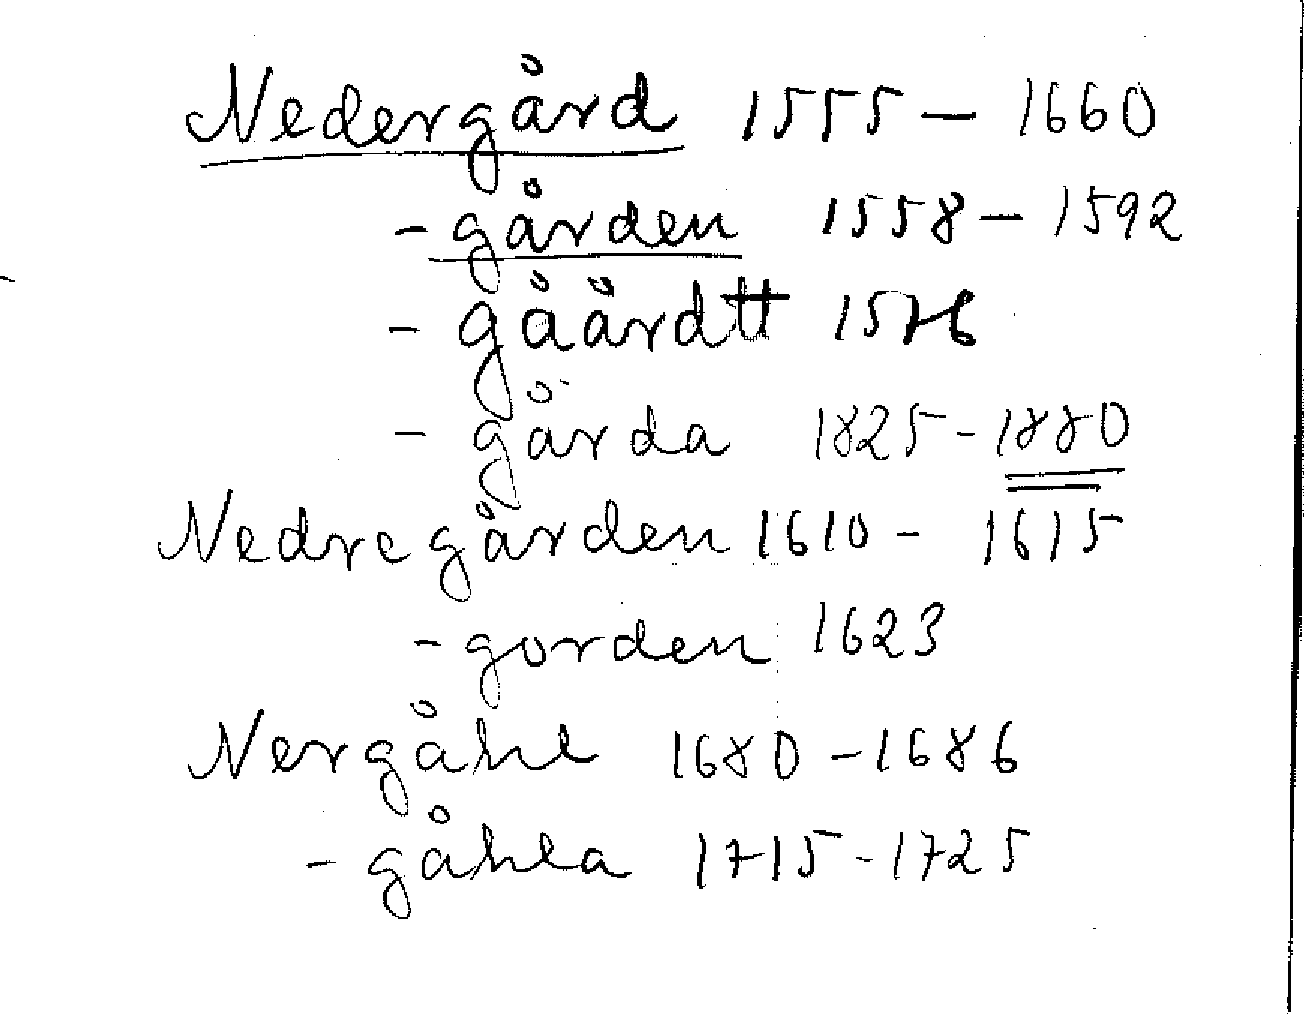 Nedergård 1555 – 1660
- gården 1558 – 1592
- gåårdtt 1576
- gårda 1825 - 1880
Nedregården 1610 - 1615
- gorden 1623
Nergåhl 1680 - 1686
- gåhla 1715 - 1725